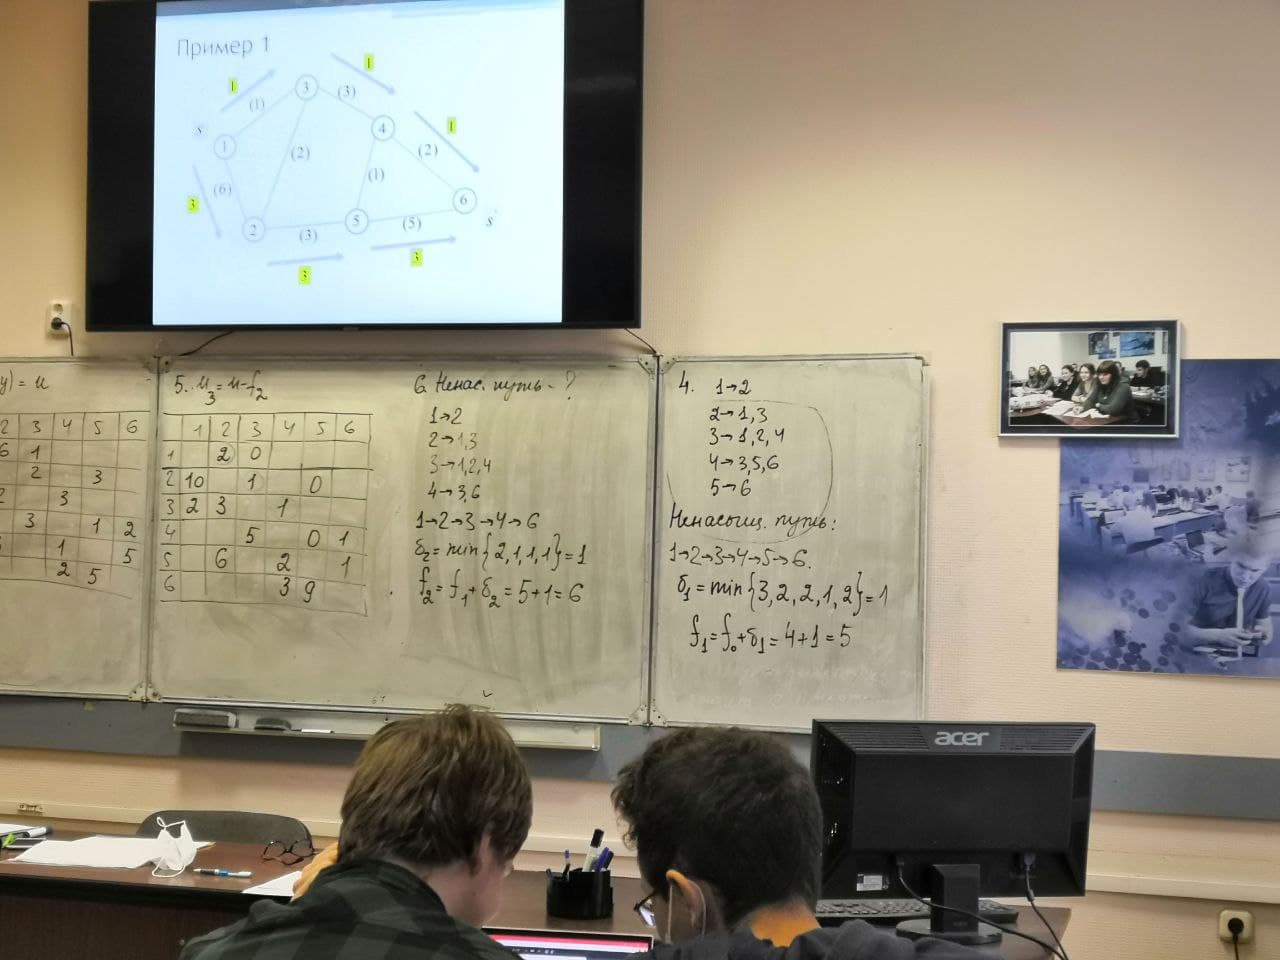 Пример 1
1
1
(1)
3
(3)
s
1
4
1
(2)
(2)
(6)
(1)
3
6
2
5
(5)
s
(3)
3
3
y) = u
2 3 4 5 6
6 1
2 3
2 3
3 1 2
1 5
2 5
5. u₃ = u-f₂
1 2 3 4 5 6
1 2 0
2 10 1 0
3 2 3 1
4 5 0 1
5 6 2 1
6 3 9
6. Ненас. путь - ?
1→2
2→1,3
3→1,2,4
4→3,6
1→2→3→4→6
δ₂ = min{2,1,1,1} = 1
f₂ = f₁ + δ₂ = 5+1 = 6
4. 1→2
2→1,3
3→1,2,4
4→3,5,6
5→6
Ненасыщ. путь:
1→2→3→4→5→6.
δ₁ = min{3,2,2,1,2} = 1
f₁ = f₀ + δ₁ = 4+1 = 5
acer